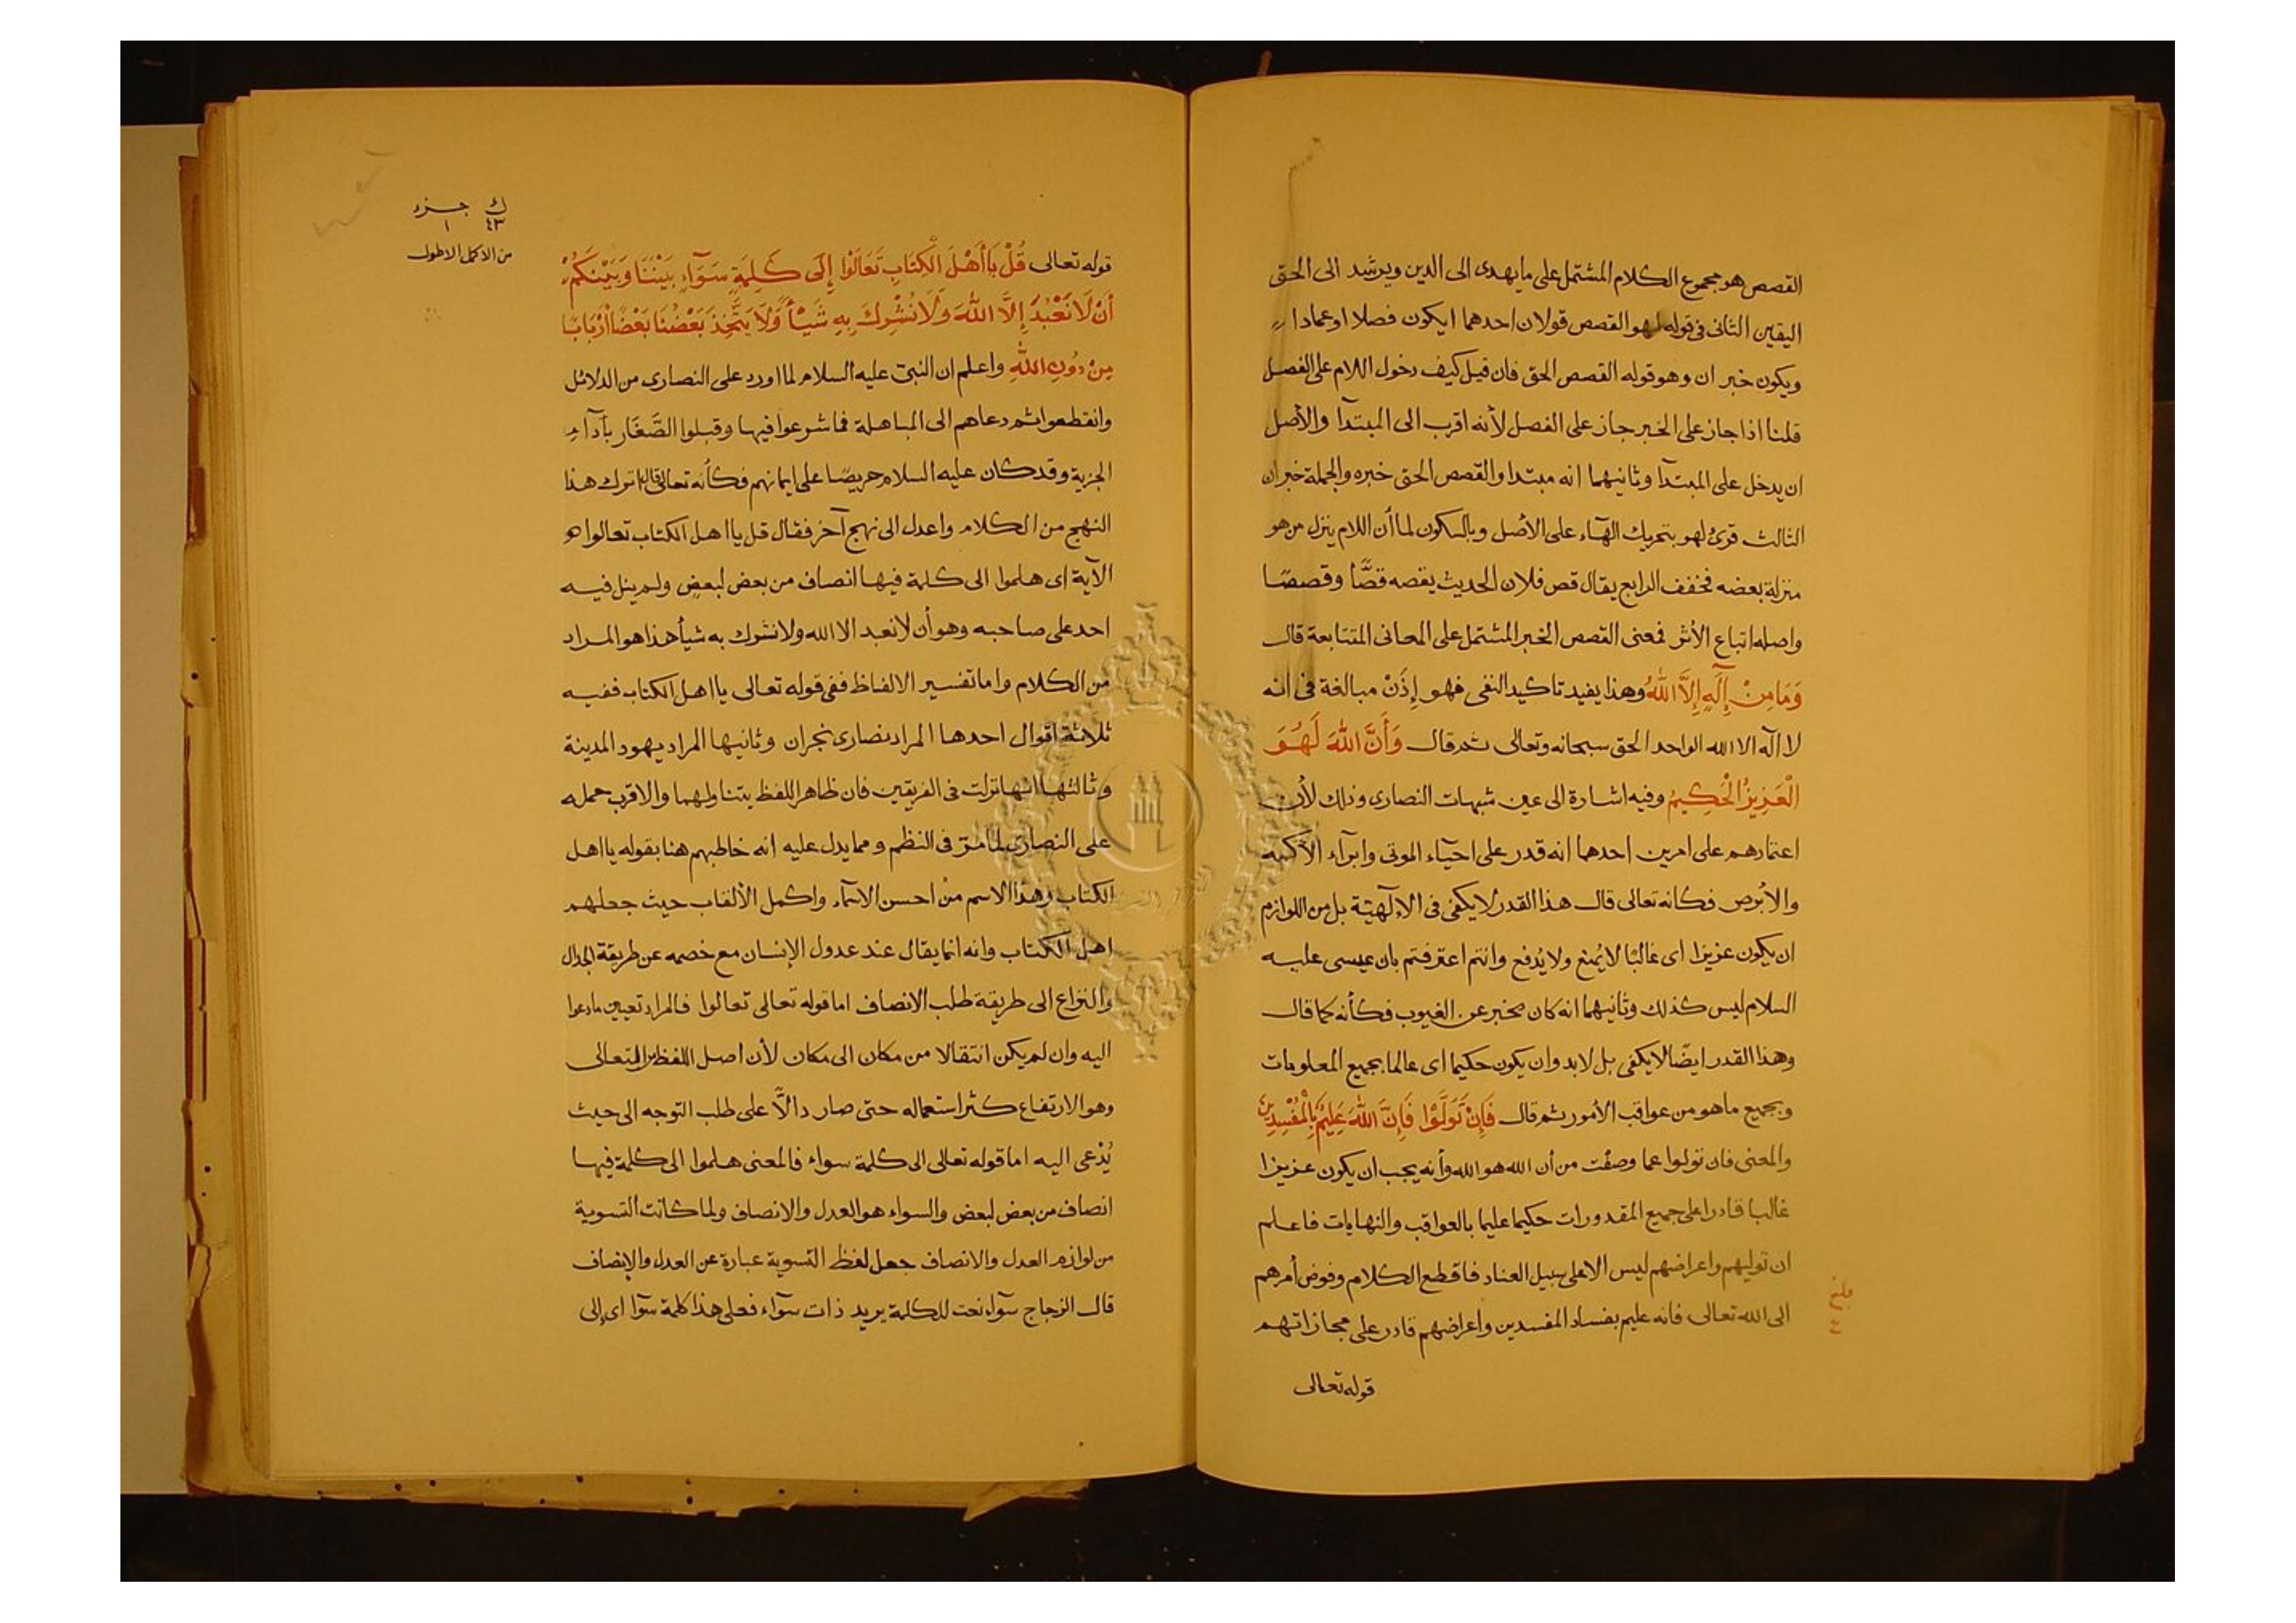 القصص هو مجموع الكلام المشتمل على ما يهدى الى الدين ويرشد الى الحق
اليقين الثانى فى قوله لهو القصص قولان احدهما ايكون فصلا او عمادا
ويكون خبر ان وهو قوله القصص الحق فان قيل كيف دخول اللام على الفصل
قلنا اذا جاز على الخبر جاز على الفصل لأنه اقرب الى المبتدآ والأصل
ان يدخل على المبتدآ وثانيهما انه مبتدا والقصص الحق خبره والجملة خبر ان
الثالث قرئ لهو بتحريك الهآء على الأصل وبالسكون لما أن اللام ينزل من هو
منزلة بعضه فخفف الرابع يقال قص فلان الحديث يقصه قصًّا وقصصًا
واصله اتباع الأثر فمعنى القصص الخبر المشتمل على المعانى المتتابعة قال
وَمَا مِنْ إِلَهٍ إِلاَّ اللّٰهُ وهذا يفيد تاكيد النفى فهو إِذَنْ مبالغة فى انه
لا اله الا الله الواحد الحق سبحانه وتعالى ثم قال وَأَنَّ اللّٰهَ لَهُوَ
الْعَزِيزُ الْحَكِيمُ وفيه اشارة الى عين شبهات النصارى وذلك لأن
اعتمادهم على امرين احدهما انه قدر على احيآء الموتى وابرآء الأكمه
والأبرص فكانه تعالى قال هذا القدر لا يكفى فى الإلهيّة بل من اللوازم
ان يكون عزيزا اى غالبًا لا يُمنع ولا يُدفع وانتم اعترفتم بان عيسى عليه
السلام ليس كذلك وثانيهما انه كان مخبر عن الغيوب فكأنه كما قال
وهذا القدر ايضًا لا يكفى بل لابد وان يكون حكيما اى عالما بجميع المعلومات
وبجميع ما هو من عواقب الأمور ثم قال فَإِنْ تَوَلَّوْا فَإِنَّ اللّٰهَ عَلِيمٌ بِالْمُفْسِدِينَ
والمعنى فان تولوا عما وصفت من أن الله هو الله وأنه يجب ان يكون عزيزا
غالبا قادرا على جميع المقدورات حكيما عليما بالعواقب والنهايات فاعلم
ان توليهم واعراضهم ليس الا على سبيل العناد فاقطع الكلام وفوض أمرهم
الى الله تعالى فانه عليم بفساد المفسدين واعراضهم قادر على مجازاتهم
قوله تعالى
ك جزء
٤٣ ١
من الاكمل الاطول
قوله تعالى قُلْ يَا أَهْلَ الْكِتَابِ تَعَالَوْا إِلَى كَلِمَةٍ سَوَآءٍ بَيْنَنَا وَبَيْنَكُمْ
أَنْ لَا نَعْبُدَ إِلاَّ اللّٰهَ وَلَا نُشْرِكَ بِهِ شَيْأً وَلَا يَتَّخِذَ بَعْضُنَا بَعْضًا أَرْبَابًا
مِنْ دُونِ اللّٰهِ واعلم ان النبىّ عليه السلام لما اورد على النصارى من الدلائل
وانقطعوا ثم دعاهم الى المباهلة فما شرعوا فيها وقبلوا الصَّغَار بأدآء
الجزية وقد كان عليه السلام حريصًا على ايمانهم فكأنه تعالى قال اترك هذا
النهج من الكلام واعدل الى نهج آخر فقال قل يا اهل الكتاب تعالوا
الآية اى هلموا الى كلمة فيها انصاف من بعض لبعض ولم ينل فيه
احد على صاحبه وهو أن لا نعبد الا الله ولا نشرك به شيأ هذا هو المراد
من الكلام واما تفسير الالفاظ ففى قوله تعالى يا اهل الكتاب ففيه
ثلاثة اقوال احدها المراد نصارى نجران وثانيها المراد يهود المدينة
وثالثها انها نزلت فى الفريقين فان ظاهر اللفظ يتناولهما والاقرب حمله
على النصارى لما مرّ فى النظم ومما يدل عليه انه خاطبهم هنا بقوله يا اهل
الكتاب وهذا الاسم من احسن الاسمآء واكمل الألقاب حيث جعلهم
اهل الكتاب وانه انما يقال عند عدول الإنسان مع خصمه عن طريقة الجدال
والنزاع الى طريقة طلب الانصاف اما قوله تعالى تعالوا فالمراد تعيين ما دعوا
اليه وان لم يكن انتقالا من مكان الى مكان لأن اصل اللفظ من التعالى
وهو الارتفاع كثر استعماله حتى صار دالاًّ على طلب التوجه الى حيث
يُدْعى اليه اما قوله تعالى الى كلمة سواء فالمعنى هلموا الى كلمة فيها
انصاف من بعض لبعض والسواء هو العدل والانصاف ولما كانت التسوية
من لوازم العدل والانصاف جعل لفظ التسوية عبارة عن العدل والإنصاف
قال الزجاج سوآء نعت للكلمة يريد ذات سوآء فعلى هذا كلمة سوآا اى إلى